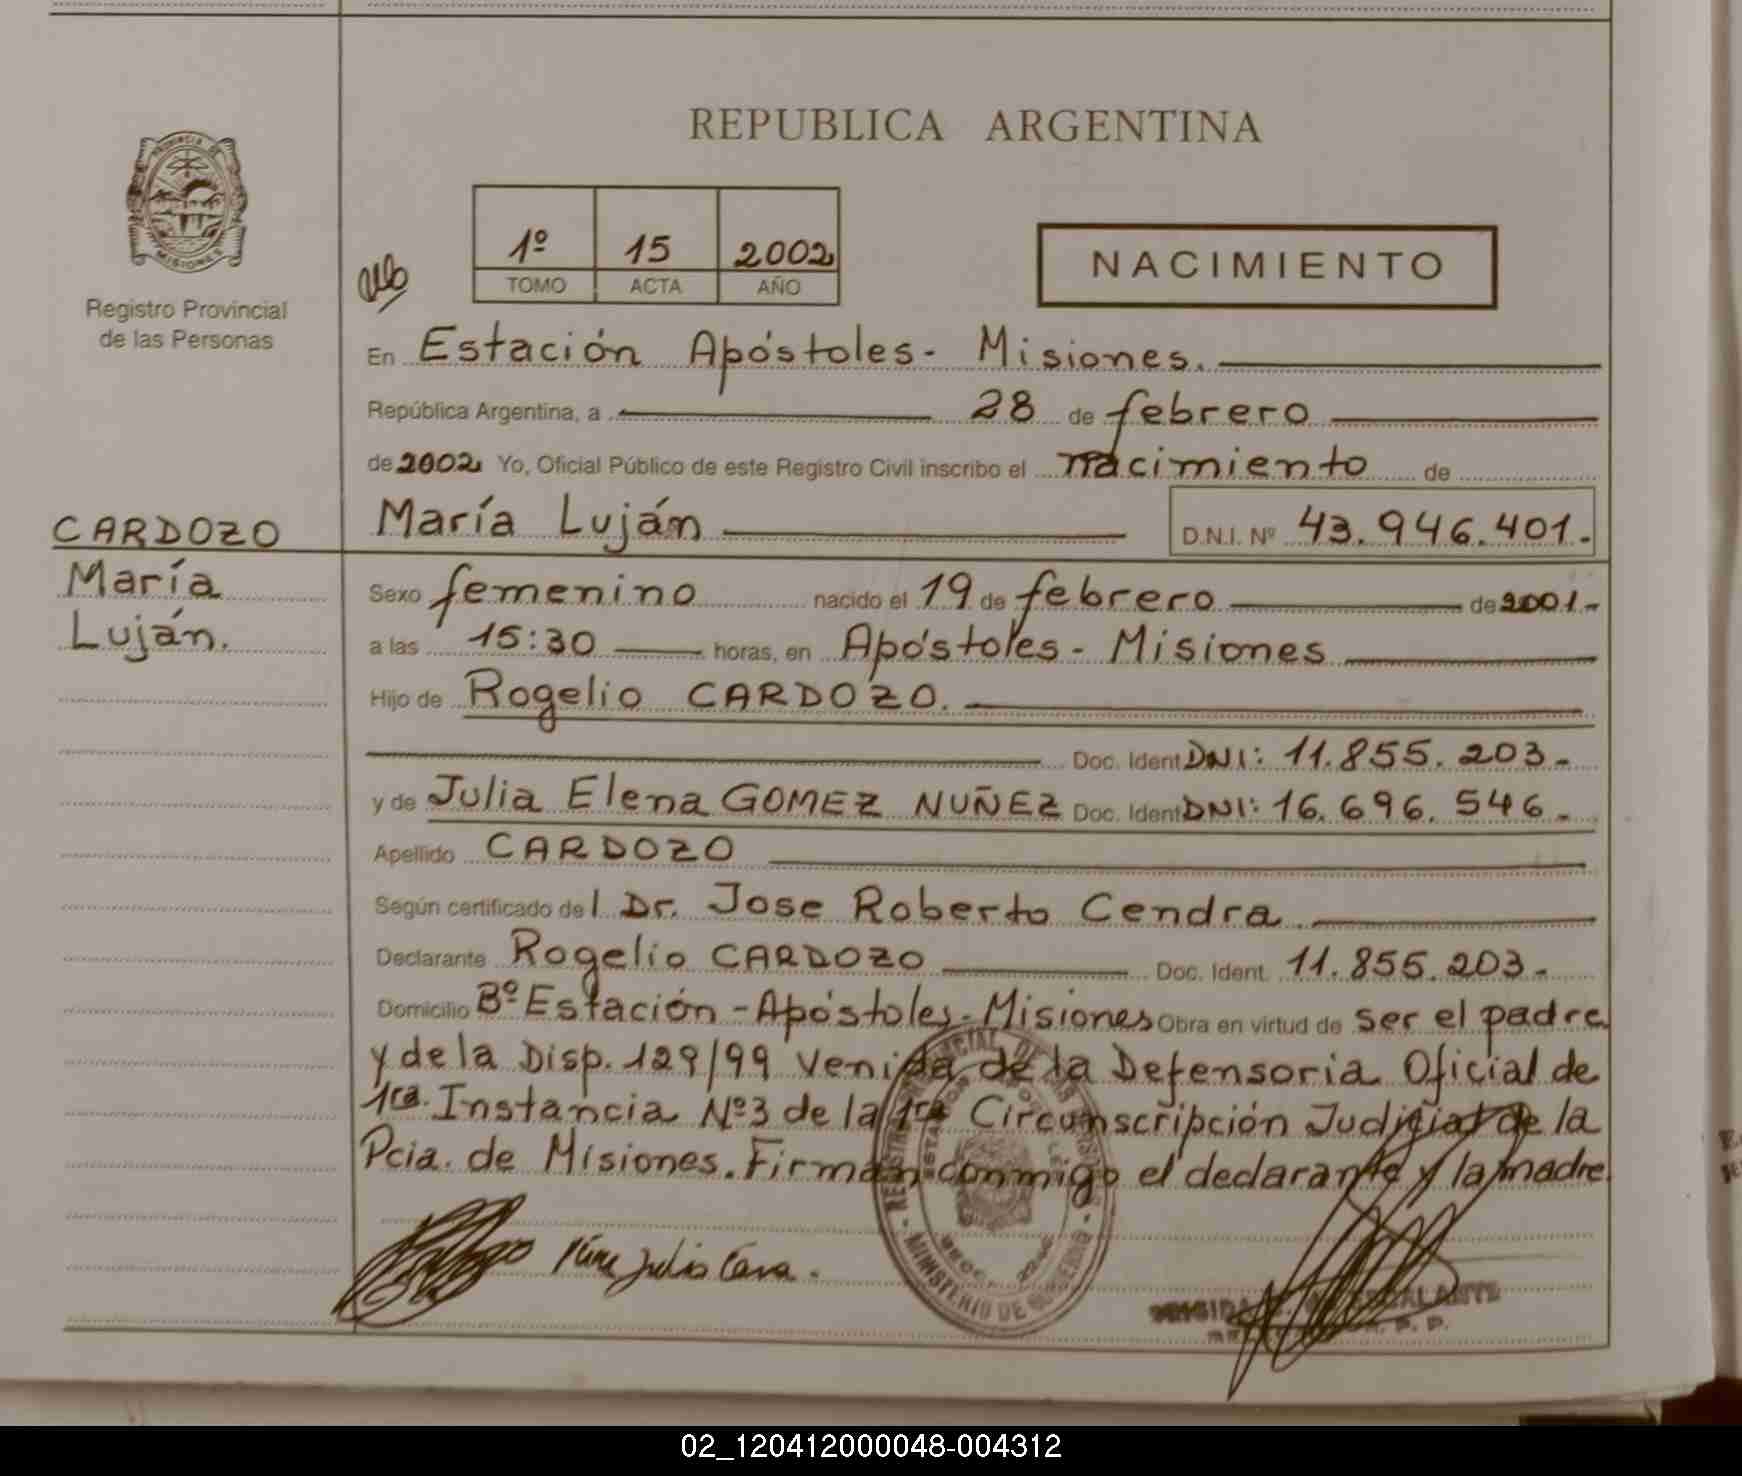 REPUBLICA ARGENTINA
PROVINCIA DE
MISIONES
Registro Provincial
de las Personas
1º 15 2002
TOMO ACTA AÑO
NACIMIENTO
En Estación Apóstoles - Misiones.
República Argentina, a 28 de febrero
de 2002 Yo, Oficial Público de este Registro Civil inscribo el nacimiento de
María Luján D.N.I. Nº 43.946.401.-
CARDOZO
María
Luján.
Sexo femenino nacido el 19 de febrero de 2001.-
a las 15:30 horas, en Apóstoles - Misiones
Hijo de Rogelio CARDOZO.
Doc. Ident DNI: 11.855.203.-
y de Julia Elena GOMEZ NUÑEZ Doc. Ident DNI: 16.696.546.-
Apellido CARDOZO
Según certificado del Dr. Jose Roberto Cendra.
Declarante Rogelio CARDOZO Doc. Ident. 11.855.203.-
Domicilio Bº Estación - Apóstoles - Misiones Obra en virtud de ser el padre
y de la Disp. 129/99 Venida de la Defensoria Oficial de
1ra. Instancia Nº3 de la 1ra Circunscripción Judicial de la
Pcia. de Misiones. Firman conmigo el declarante y la madre.
MINISTERIO DE GOBIERNO
02_120412000048-004312